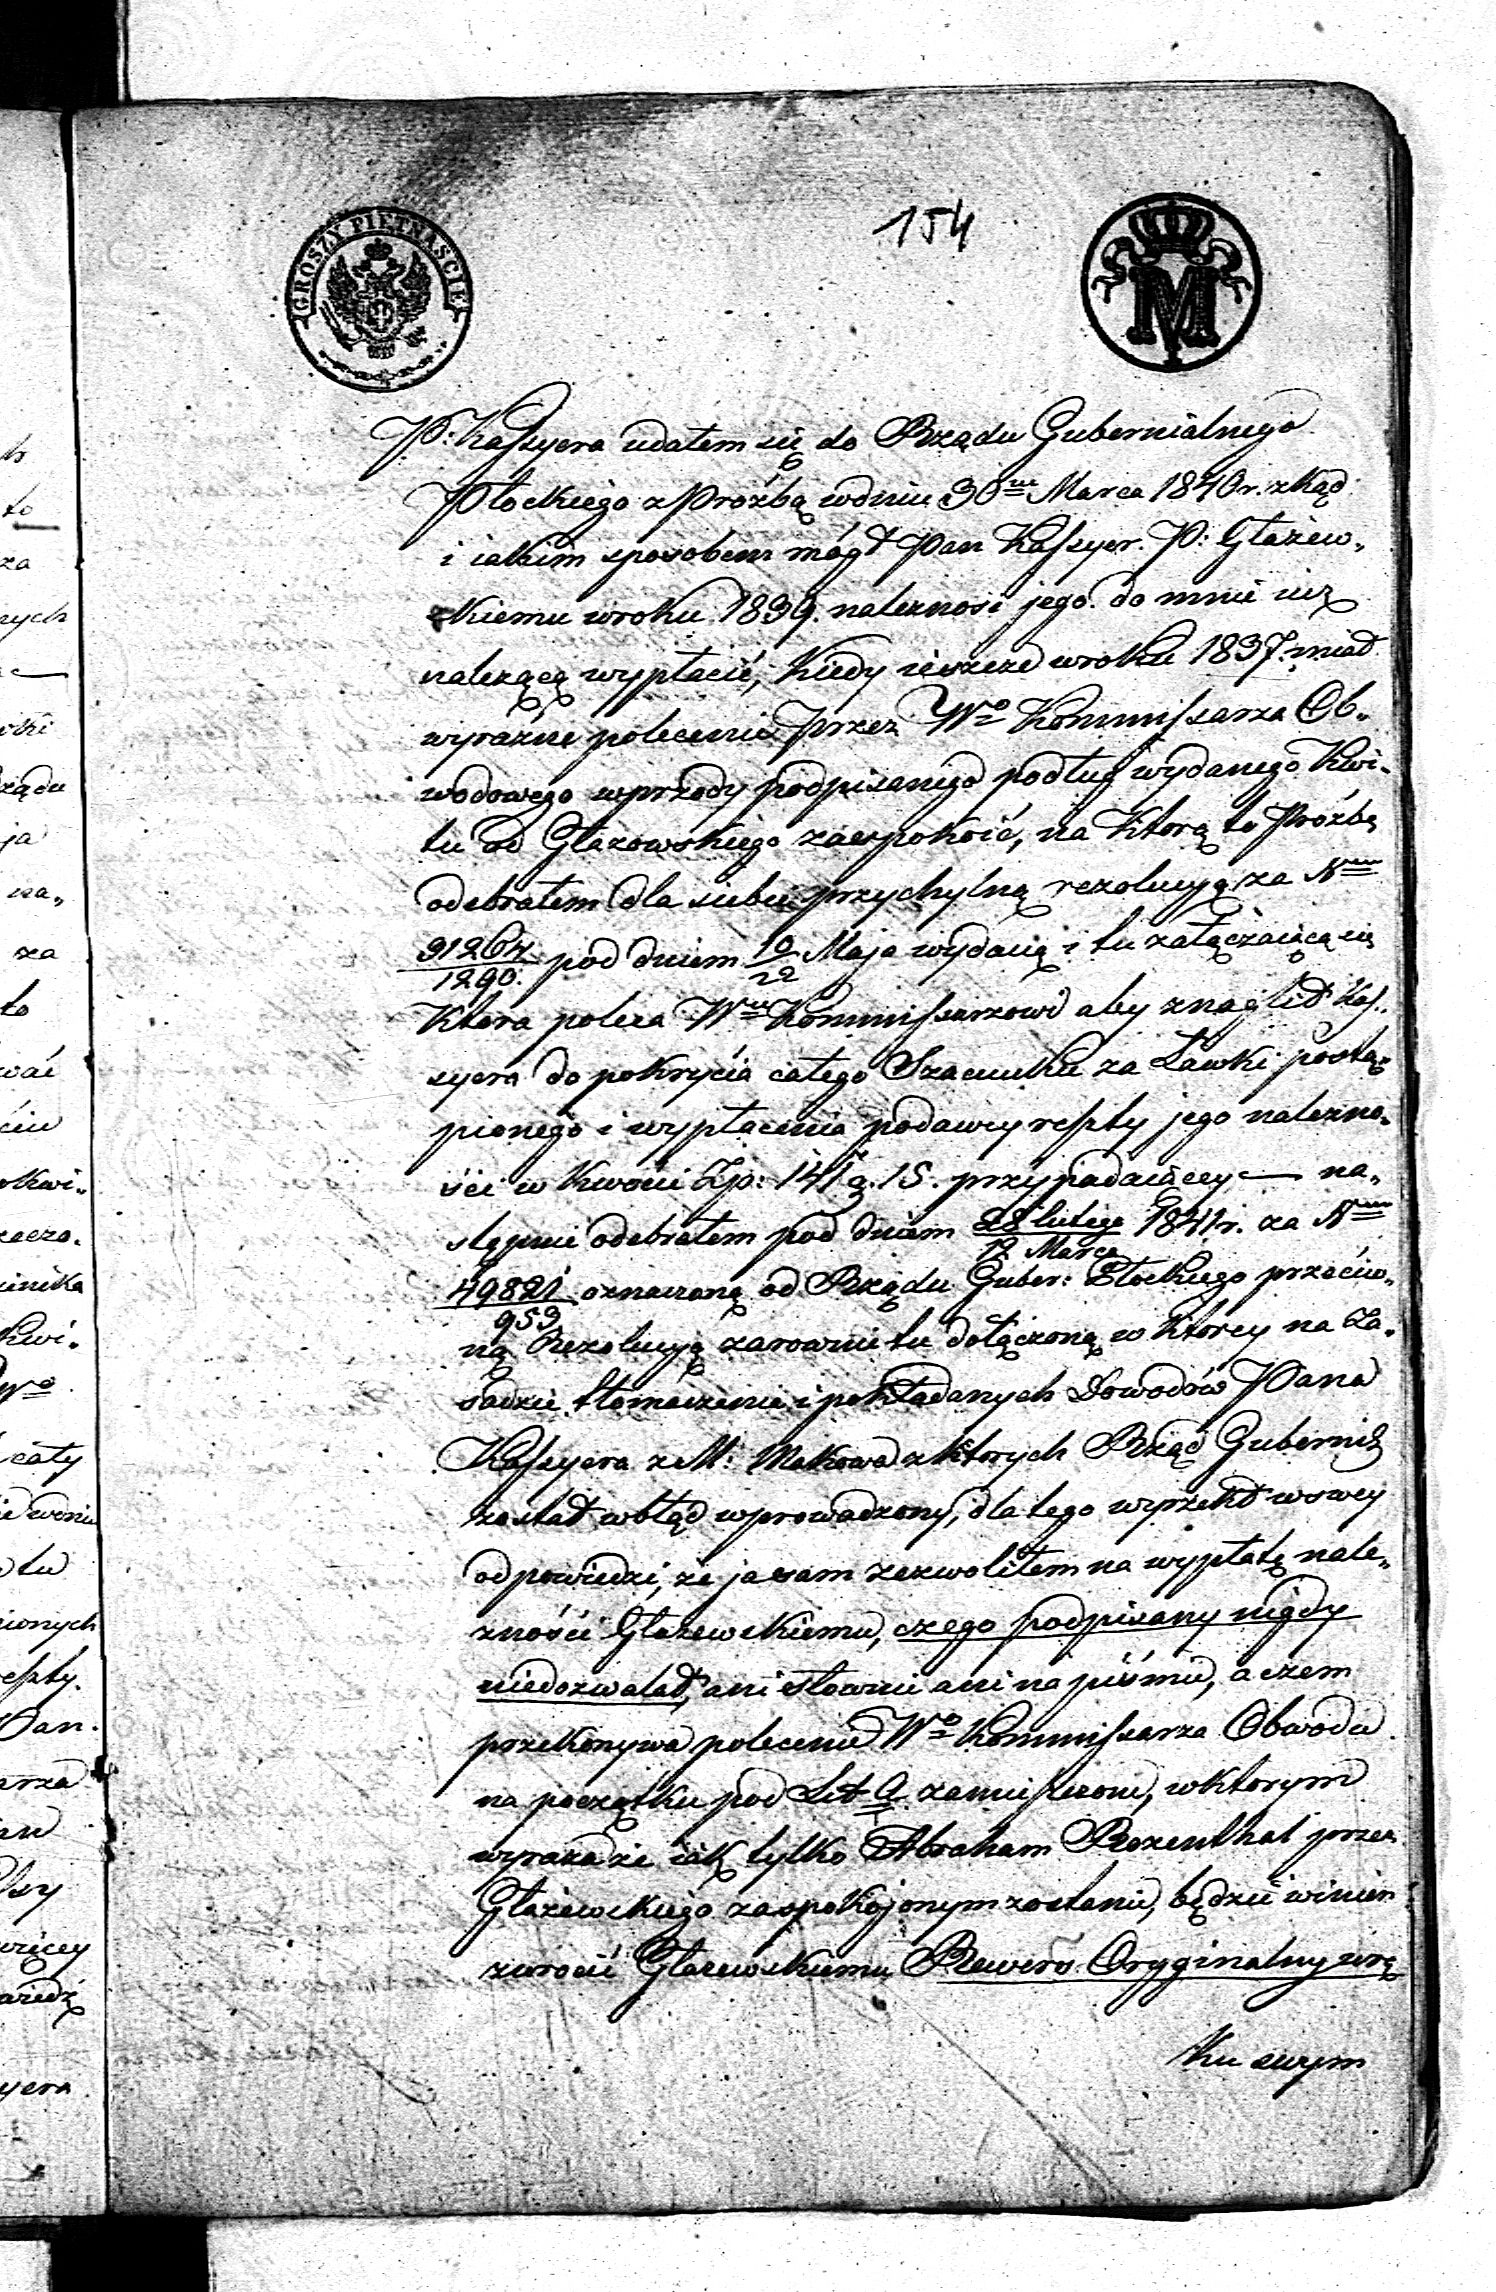 154
GROSZY PIĘTNAŚCIE
M
P: Kassyera udałem się do Rządu Gubernialnego
Płockiego z Proźbą w dniu 30 Marca 1840 r. zkąd
i iakim sposobem mógł Pan Kassyer P: Głażew„
skiemu w roku 1839. należnosć jego do mnie iuż
należącą wypłacić, Kiedy ieszcze w roku 1837. miał
wyraźne polecenie przez Wo Kommissarza Ob„
wodowego wprzody podpisanego podług wydanego Kwi„
tu od Głazowskiego zaespokoić, na Którą to Prózbę
odebrałem dla siebie przychylną rezolucyą za Nrem
31264/1290. pod dniem 10/22 Maja wydaną i tu załączaiącą się
Która poleca Wmu Kommissarzowi aby znaglił Kas„
syera do pokrycia całego Szacunku za Ławki postą„
pionego i wypłacenia podawcy reszty jego należno„
ści w Kwocie Zp: 141 g. 15. przypadaiącey — na„
stępnie odebrałem pod dniem 28 lutego/12 Marca 1841 r. za Nrem
49821/953 oznaczoną od Rządu Guber: Płockiego przeciw„
ną Rezolucyą zarownie tu dołączoną w Ktorey na Za„
sadzie tłomaczenia i pokładanych Dowodów Pana
Kassyera z M: Makowa z Ktorych Rząd Gubernial
został w błąd wprowadzony, dla tego wyrzekł w swey
odpowiedzi, że ja sam zezwoliłem na wypłatę nale„
zności Głazewskiemu, czego podpisany nigdy
niedozwalał, ani słownie ani na piśmie, a czem
przekonywa polecenie Wo Kommissarza Obwodu
na początku pod Lit a zamieszczone, w Ktorym
wyraża że iak tylko Abraham Rozenthal przez
Głażewskiego zaspokojonym zostanie, będzie winien
zwrocić Głazewskiemu Rewers Oryginalny w rę
Ku swym